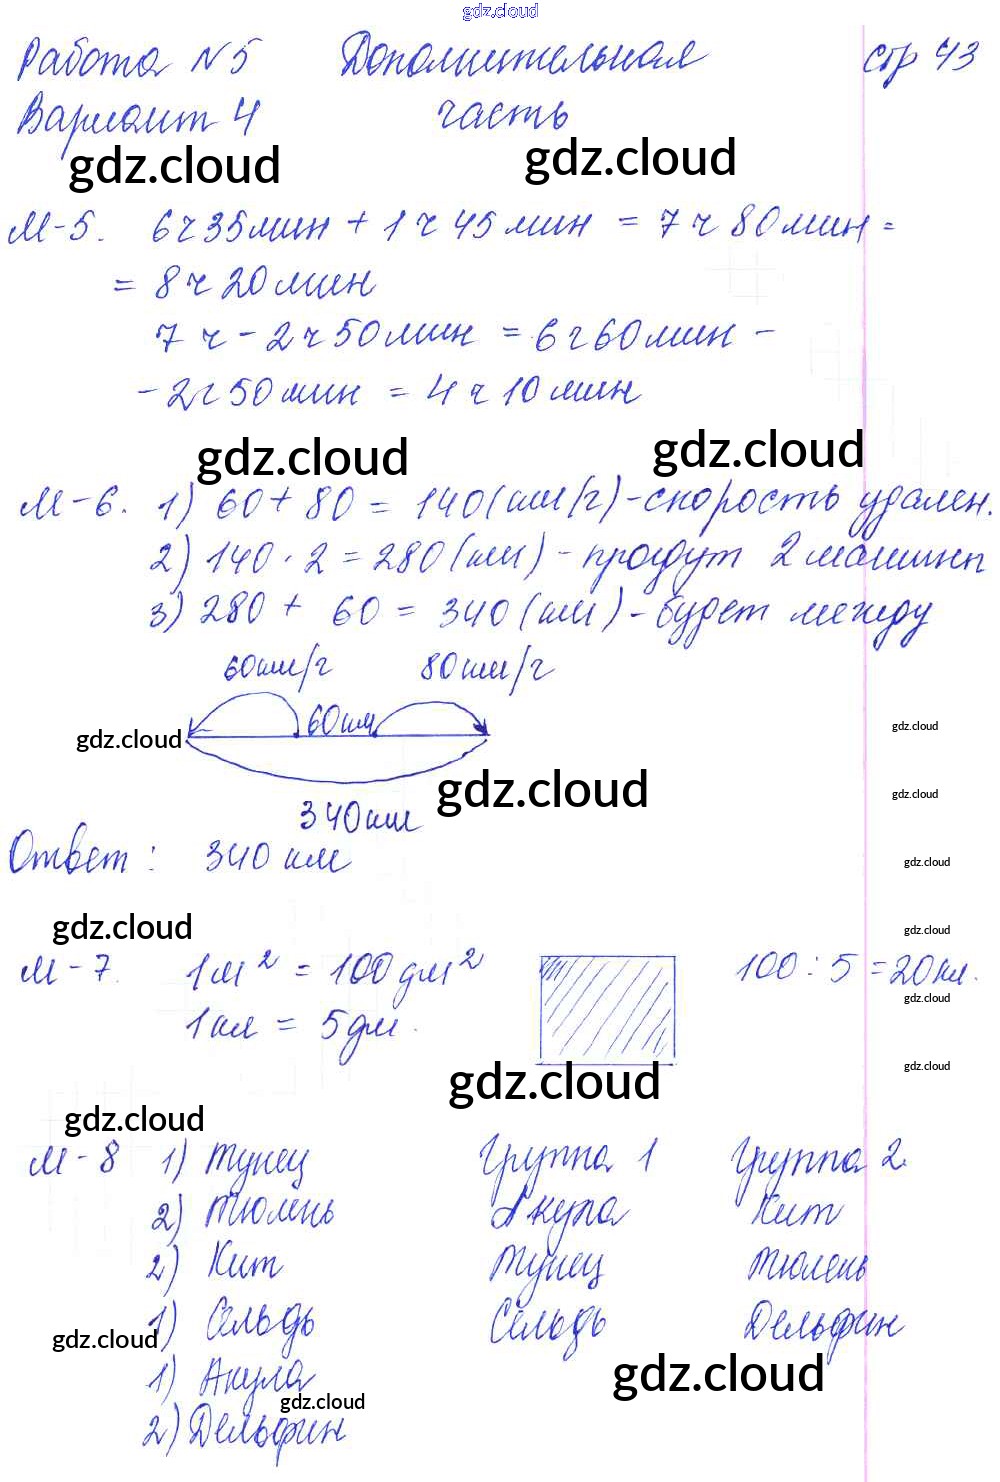 gdz.cloud
Работа N5 Дополнительная стр 43
Вариант 4 часть
gdz.cloud gdz.cloud
М-5. 6ч35мин + 1ч 45 мин = 7ч 80мин =
= 8ч 20мин
7ч - 2ч50мин = 6ч60мин -
- 2ч50мин = 4ч10мин
gdz.cloud gdz.cloud
М-6. 1) 60 + 80 = 140(км/ч) - скорость удален.
2) 140 · 2 = 280(км) - пройдут 2 машины
3) 280 + 60 = 340(км) - будет между
60км/ч 80км/ч
60км
gdz.cloud gdz.cloud
gdz.cloud gdz.cloud
340км
Ответ: 340 км
gdz.cloud
gdz.cloud gdz.cloud
М-7. 1м² = 100дм² 100 : 5 = 20кл.
gdz.cloud
1кл = 5дм.
gdz.cloud gdz.cloud
gdz.cloud
М-8 1) Тунец Группа 1 Группа 2.
2) Тюлень Акула Кит
2) Кит Тунец Тюлень
1) Сельдь Сельдь Дельфин
gdz.cloud
1) Акула gdz.cloud
gdz.cloud
2) Дельфин